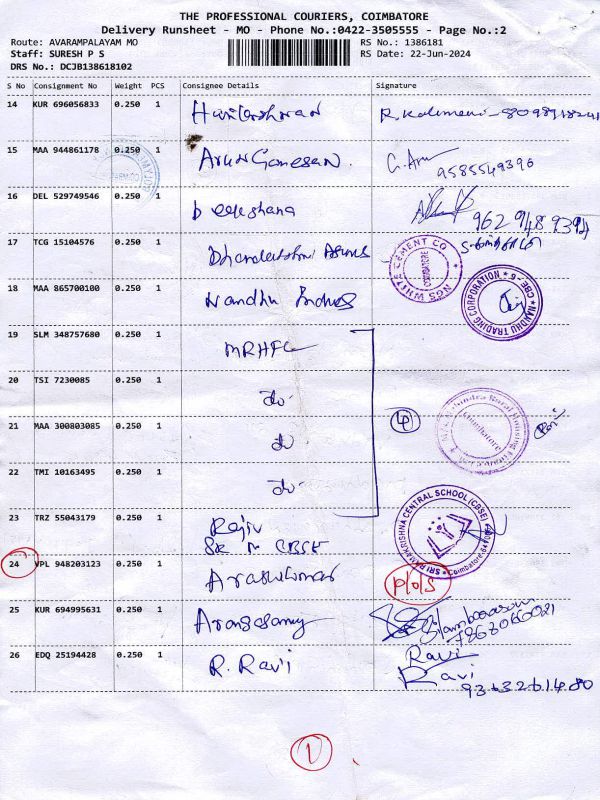 THE PROFESSIONAL COURIERS, COIMBATORE
Delivery Runsheet - MO - Phone No.:0422-3505555 - Page No.:2
Route: AVARAMPALAYAM MO
Staff: SURESH P S
DRS No.: DCJB138618102
RS No.: 1386181
RS Date: 22-Jun-2024
S No Consignment No Weight PCS Consignee Details Signature
14 KUR 696056833 0.250 1
15 MAA 944861178 0.250 1 Arun Ganesan. G. Arun
9585549390
16 DEL 529749546 0.250 1 Deekshana
9629489394
17 TCG 15104576 0.250 1
NGS WHITE CEMENT CO
COIMBATORE
18 MAA 865700100 0.250 1 Nandhu
NANDHU TRADING CORPORATION * CBE-6 *
19 SLM 348757680 0.250 1 MRHFL
20 TSI 7230085 0.250 1 do
21 MAA 300803085 0.250 1 do
4
Coimbatore
22 TMI 10163495 0.250 1 do
23 TRZ 55043179 0.250 1 Rajiv
SRK M CBSE
SRI RAMAKRISHNA CENTRAL SCHOOL (CBSE)
24 VPL 948203123 0.250 1 Arasukumar P/o/s
25 KUR 694995631 0.250 1 Arangasamy
7868060021
26 EDQ 25194428 0.250 1 R. Ravi Ravi
Ravi
9363261480
1